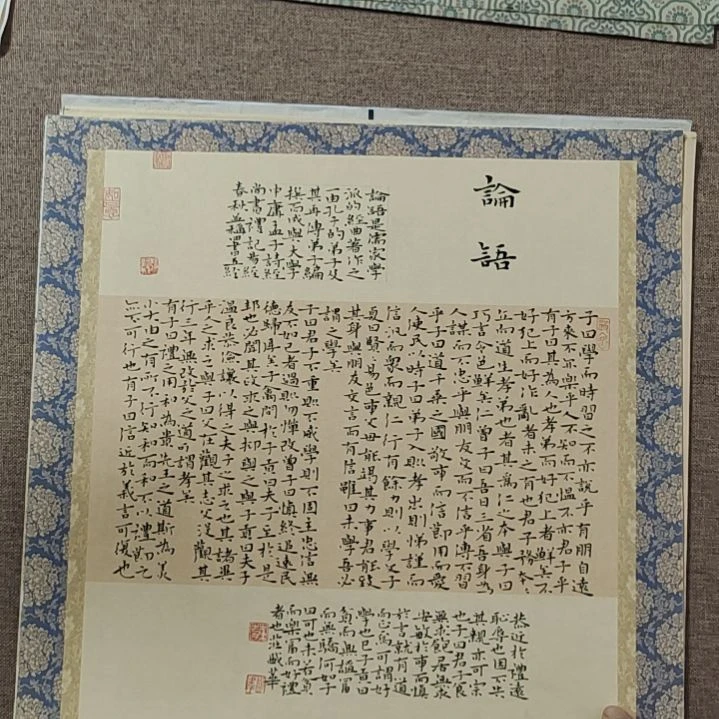 論語
論語是儒家學
派的經典著作之
一由孔子的弟子及
其再傳弟子編
撰而成與大學
中庸孟子詩經
尚書禮記易經
春秋並稱四書五經
子曰學而時習之不亦說乎有朋自遠
方來不亦樂乎人不知而不慍不亦君子乎
有子曰其為人也孝弟而好犯上者鮮矣不
好犯上而好作亂者未之有也君子務本本
立而道生孝弟也者其為仁之本與子曰
巧言令色鮮矣仁曾子曰吾日三省吾身為
人謀而不忠乎與朋友交而不信乎傳不習
乎子曰道千乘之國敬事而信節用而愛
人使民以時子曰弟子入則孝出則悌謹而
信汎而衆而親仁行有餘力則以學文子
夏曰賢易色事父母能竭其力事君能致
其身與朋友交言而有信雖曰未學吾必
謂之學矣
子曰君子不重則不威學則不固主忠信無
友不如己者過則勿憚改曾子曰慎終追遠民
德歸厚矣子禽問於子貢曰夫子至於是
邦也必聞其政求之與抑與之與子貢曰夫子
溫良恭儉讓以得之夫子之求之也其諸異
乎人之求之與子曰父在觀其志父沒觀其
行三年無改於父之道可謂孝矣
有子曰禮之用和為貴先王之道斯為美
小大由之有所不行知和而和不以禮節之
亦不可行也有子曰信近於義言可復也
恭近於禮遠
恥辱也因不失
其親亦可宗
也子曰君子食
無求飽居無求
安敏於事而慎
於言就有道
而正焉可謂好
學也已子貢曰
貧而無諂富
而無驕何如子
曰可也未若貧
而樂富而好禮
者也